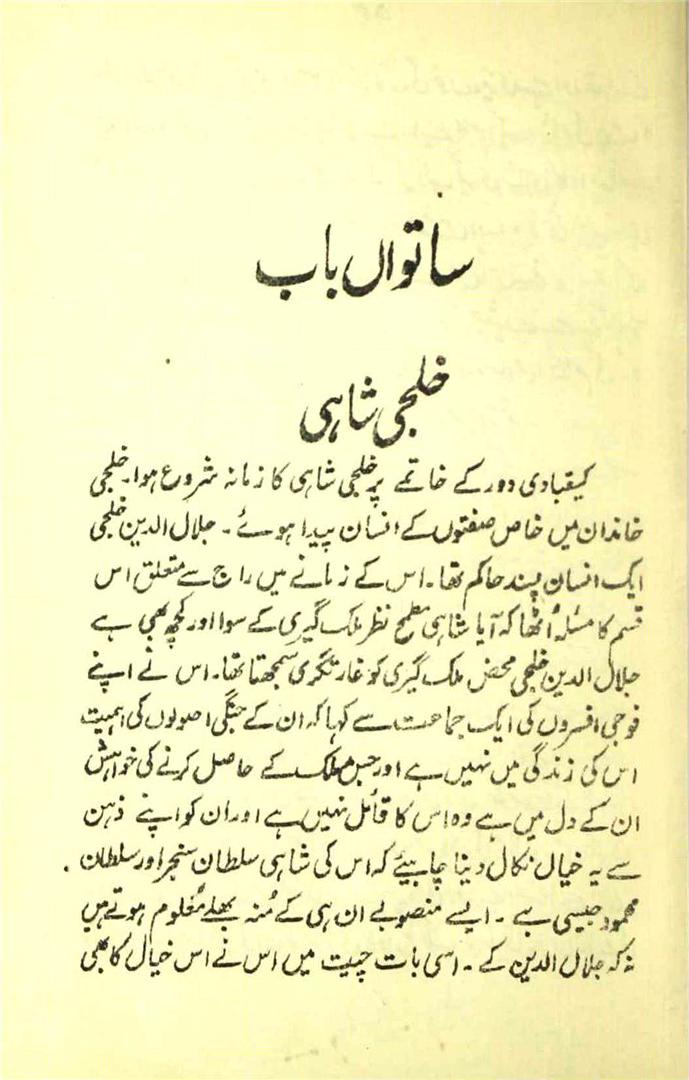 ساتواں باب
خلجی شاہی
کیقبادی دور کے خاتمے پر خلجی شاہی کا زمانہ شروع ہوا۔ خلجی
خاندان میں خاص صفتوں کے انسان پیدا ہوئے۔ جلال الدین خلجی
ایک انسان پسند حاکم تھا۔ اس کے زمانے میں راج سے متعلق اس
قسم کا مسئلہ اُٹھا کہ آیا شاہی مطمح نظر ملک گیری کے سوا اور کچھ بھی ہے
جلال الدین خلجی محض ملک گیری کو غارتگری سمجھتا تھا۔ اس نے اپنے
فوجی افسروں کی ایک جماعت سے کہا کہ ان کے جنگی اصولوں کی اہمیت
اس کی زندگی میں نہیں ہے اور جس ملک کے حاصل کرنے کی خواہش
ان کے دل میں ہے وہ اس کا قائل نہیں ہے اور ان کو اپنے ذہن
سے یہ خیال نکال دینا چاہیئے کہ اس کی شاہی سلطان سنجر اور سلطان
محمود جیسی ہے۔ ایسے منصوبے ان ہی کے مُنہ بھلے معلوم ہوتے ہیں
نہ کہ جلال الدین کے۔ اسی بات چیت میں اس نے اس خیال کا بھی